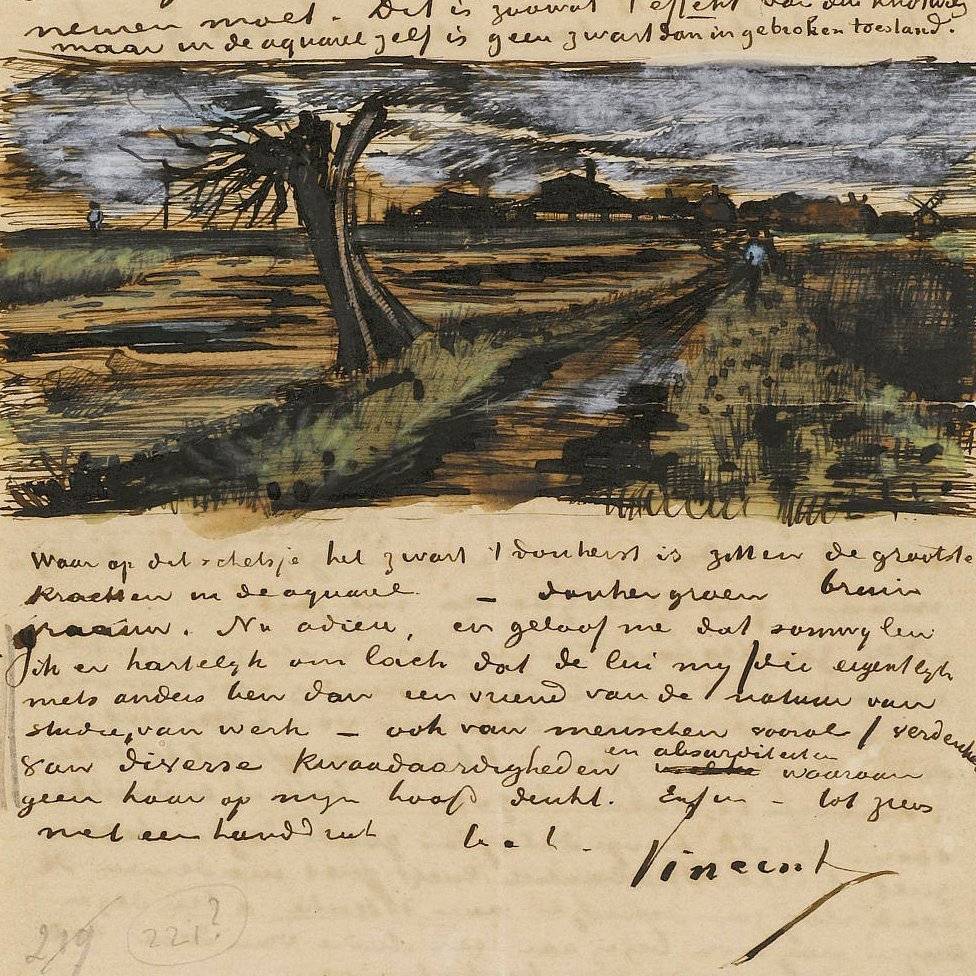 nemen moet. Dit is zoowat 't effekt van den knotwilg
maar in de aquarel zelf is geen zwart dan in gebroken toestand.
Waar op dit schetsje het zwart 't donkerst is zitten de grootste
krachten in de aquarel – donkergroen bruin
graauw. Nu adieu, en geloof me dat somwylen
ik er hartelyk om lach dat de lui my (die eigentlyk
niets anders ben dan een vriend van de natuur van
studie, van werk – ook van menschen vooral) verdenken
en absurditeiten
van diverse kwaadaardigheden waaraan
geen haar op myn hoofd denkt. Enfin – tot ziens
met een handdruk t. à t.
Vincent
219
221?